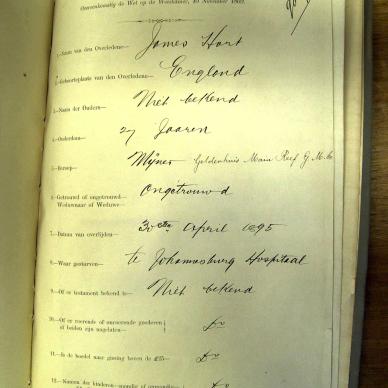 Overeenkomstig de Wet op de Weeskamer, 10 November 1882.
1.—Naam van den Overledene— James Hart
2.—Geboorteplaats van den Overledene— England
3.—Namen der Ouders— Niet bekend
4.—Ouderdom— 27 Jaaren
5.—Beroep— Mijner Geldenhuis Main Reef G. M. Co
6.—Getrouwd of ongetrouwd— Ongetrouwd
Weduwnaar of Weduwe—
7.—Datum van overlijden— 30ste April 1895
8.—Waar gestorven— te Johannesburg Hospitaal
9.—Of er testament bekend is— Niet bekend
10.—Of er roerende of onroerende goederen
of beiden zijn nagelaten—
11.—Is de boedel naar gissing boven de £15—
12.—Namen der kinderen—mondig of onmondig—